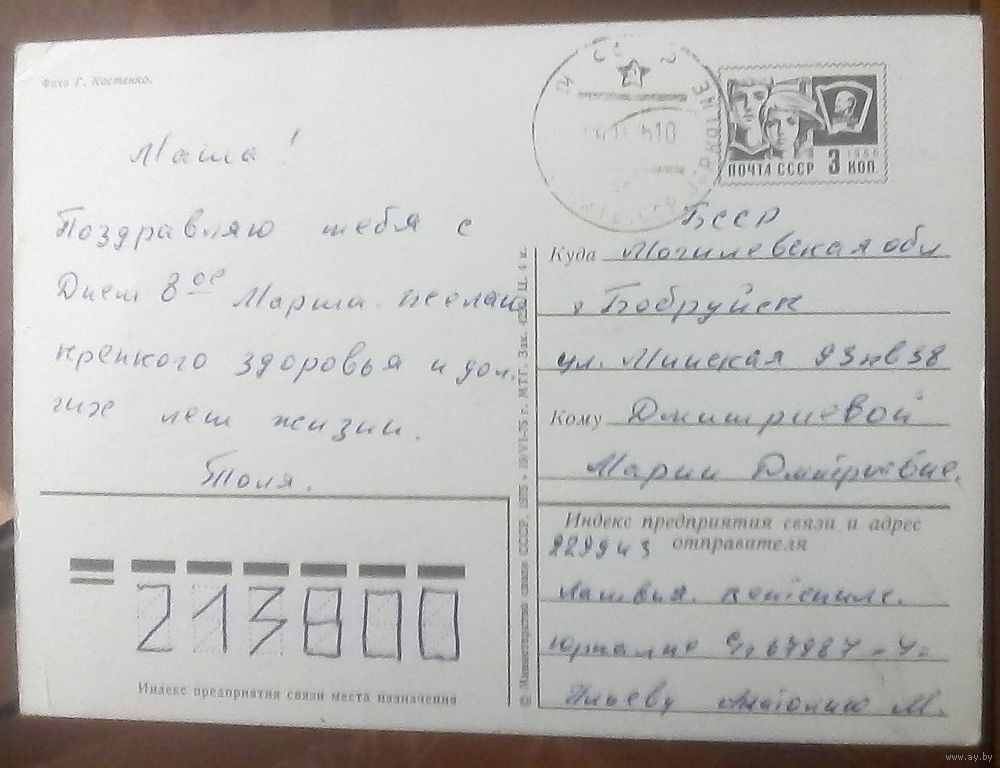 Фото Г. Костенко.
Маша!
Поздравляю тебя с
Днем 8 ое Марта. Желаю
крепкого здоровья и дол.
гих лет жизни.
Толя.
ПОЧТА СССР 3 КОП.
1966
БССР
Куда Могилевская обл
г Бобруйск
ул. Минская 93 кв 38
Кому Дмитриевой
Марии Дмитриевне.
Индекс предприятия связи и адрес
отправителя
229943
Латвия.
Ильеву Анатолию М.
213800
Индекс предприятия связи места назначения
© Министерство связи СССР, 1975
МТГ. Зак. Ц. 4 к.
www.ay.by